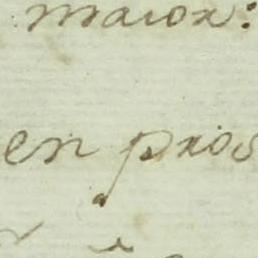 maior:
en pros